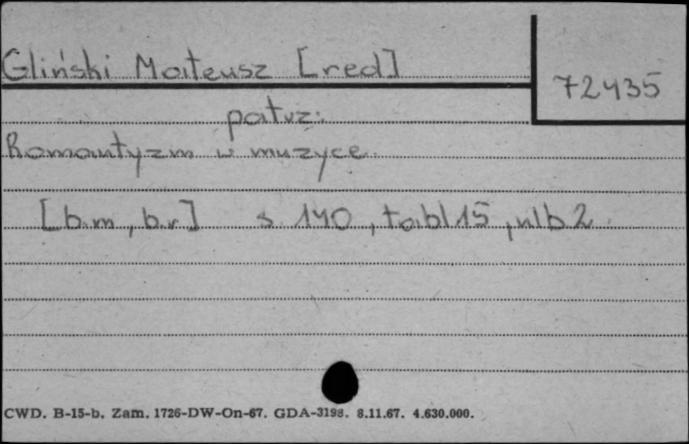 Gliński Mateusz [red]
72435
patrz:
Romantyzm w muzyce.
[b.m, b.r] s 140, tabl 15, nlb 2.
CWD. B-15-b. Zam. 1726-DW-On-67. GDA-3198. 8.11.67. 4.630.000.